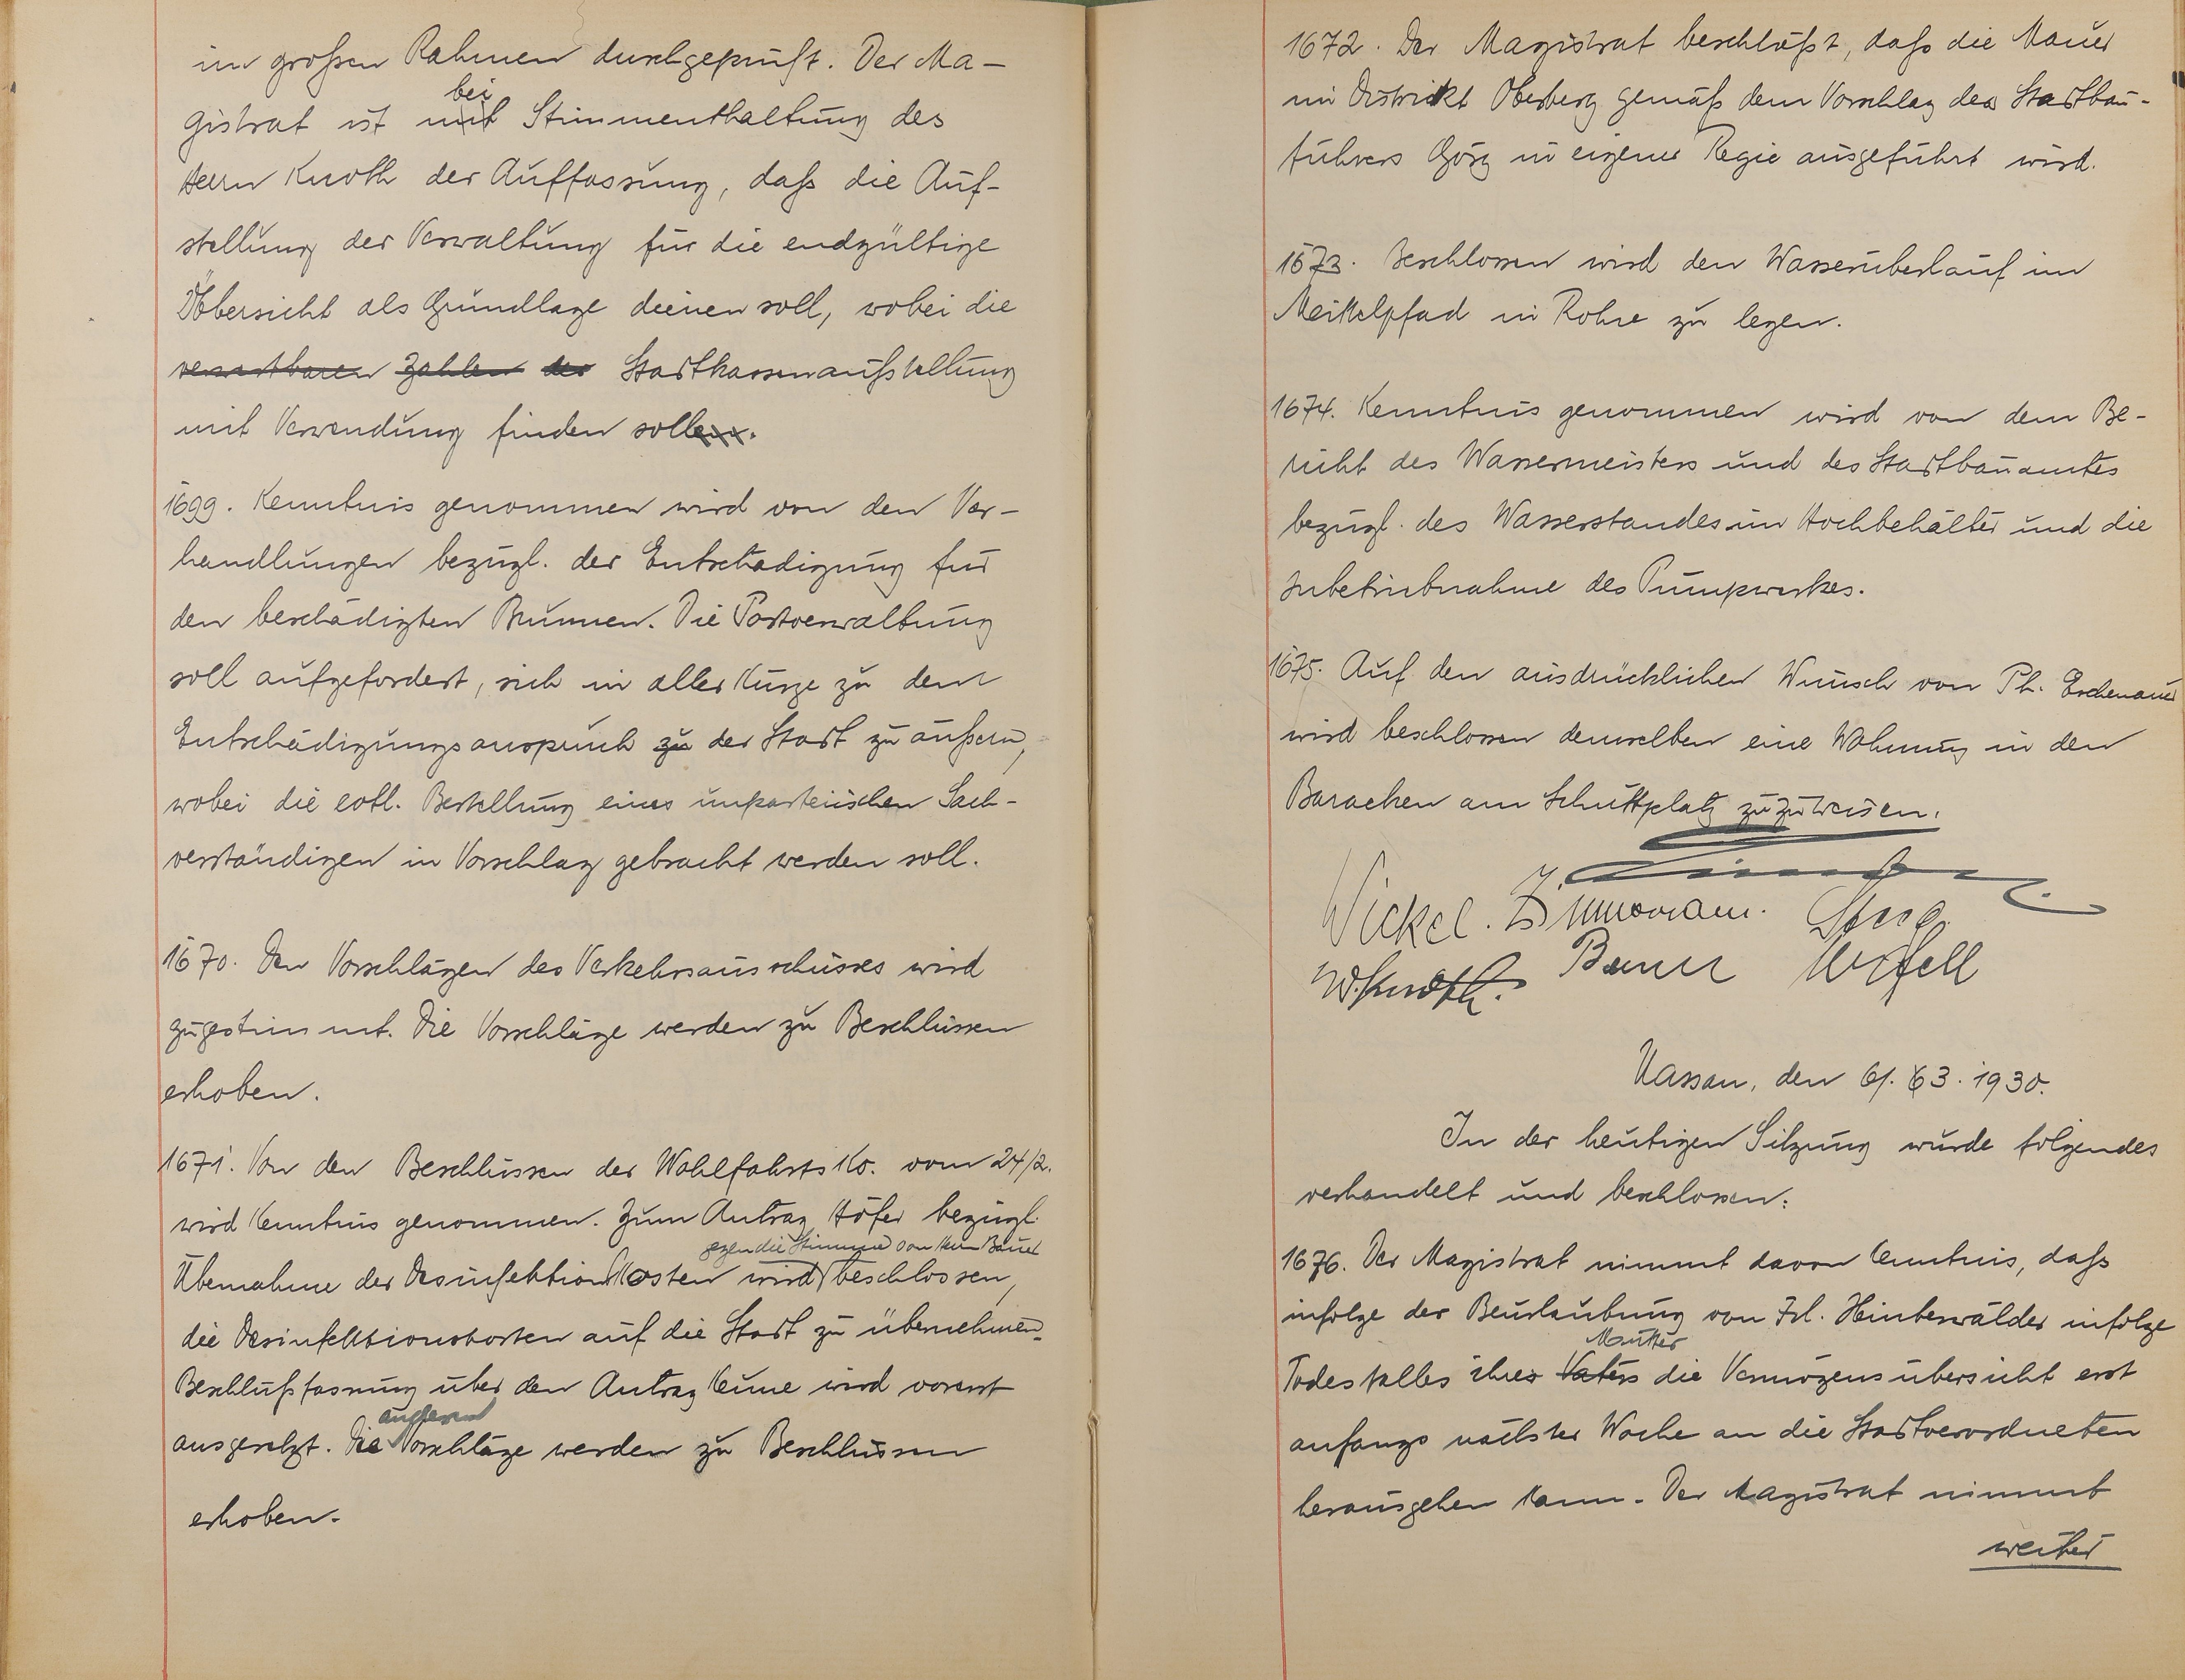 im großen Rahmen durchgeprüft. Der Ma-
bei
gistrat ist mit Stimmenthaltung des
Herrn Knoth der Auffassung, daß die Auf-
stellung der Verwaltung für die endgültige
Übersicht als Grundlage dienen soll, wobei die
verwertbaren Zahlen der Stadtkassenaufstellung
mit Verwendung finden sollen.
1699. Kenntnis genommen wird von den Ver-
handlungen bezügl. der Entschädigung für
den beschädigten Brunnen. Die Postverwaltung
soll aufgefordert, sich in aller Kürze zu dem
Entschädigungsanspruch zu der Stadt zu äußern,
wobei die evtl. Bestellung eines unparteiischen Sach-
verständigen in Vorschlag gebracht werden soll.
1670. Den Vorschlägen des Verkehrsausschusses wird
zugestimmt. Die Vorschläge werden zu Beschlüssen
erhoben.
1671. Von den Beschlüssen der Wohlfahrts Ko. vom 24/2.
wird Kenntnis genommen. Zum Antrag Höfer bezügl.
gegen die Stimme von Herrn Bauer
Übernahme der Desinfektionskosten wird beschlossen,
die Desinfektionskosten auf die Stadt zu übernehmen.
Beschlußfassung über den Antrag Keune wird vorerst
anderen
ausgesetzt. Die Vorschläge werden zu Beschlüssen
erhoben.
1672. Der Magistrat beschließt, daß die Mauer
im Distrikt Oberberg gemäß dem Vorschlag des Stadtbau-
führers Görg in eigener Regie ausgeführt wird.
1673. Beschlossen wird den Wasserüberlauf im
Meittelpfad in Rohre zu legen.
1674. Kenntnis genommen wird von dem Be-
richt des Wassermeisters und des Stadtbauamtes
bezügl. des Wasserstandes im Hochbehälter und die
Inbetriebnahme des Pumpwerkes.
1675. Auf den ausdrücklichen Wunsch von Ph. Eschenauer
wird beschlossen demselben eine Wohnung in den
Baracken am Schuttplatz zuzuweisen.
Wickel. Zimmermann.
W. Knoth. Bauer
Nassau, den 6. 3. 1930.
In der heutigen Sitzung wurde folgendes
verhandelt und beschlossen:
1676. Der Magistrat nimmt davon Kenntnis, daß
infolge der Beurlaubung von Frl. Hinterwälder infolge
Mutter
Todesfalles ihres Vaters die Vermögensübersicht erst
anfangs nächster Woche an die Stadtverordneten
herausgehen kann. Der Magistrat nimmt
weiter